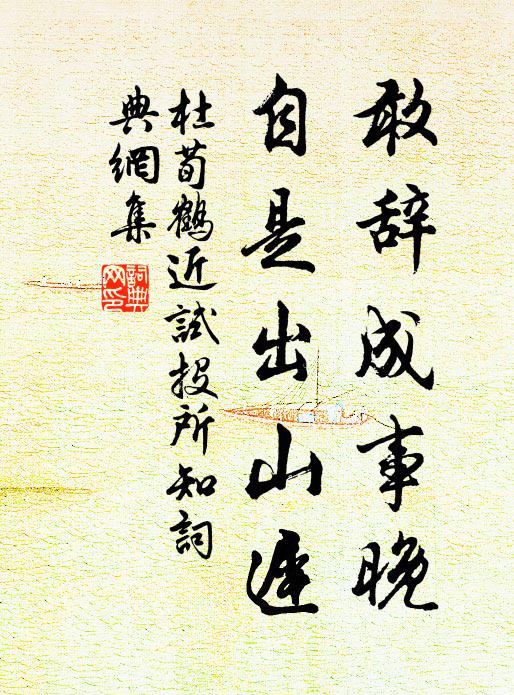 敢辞成事晚
自是出山遲
杜荀鶴近試投所知詞
典網集
詞典网印